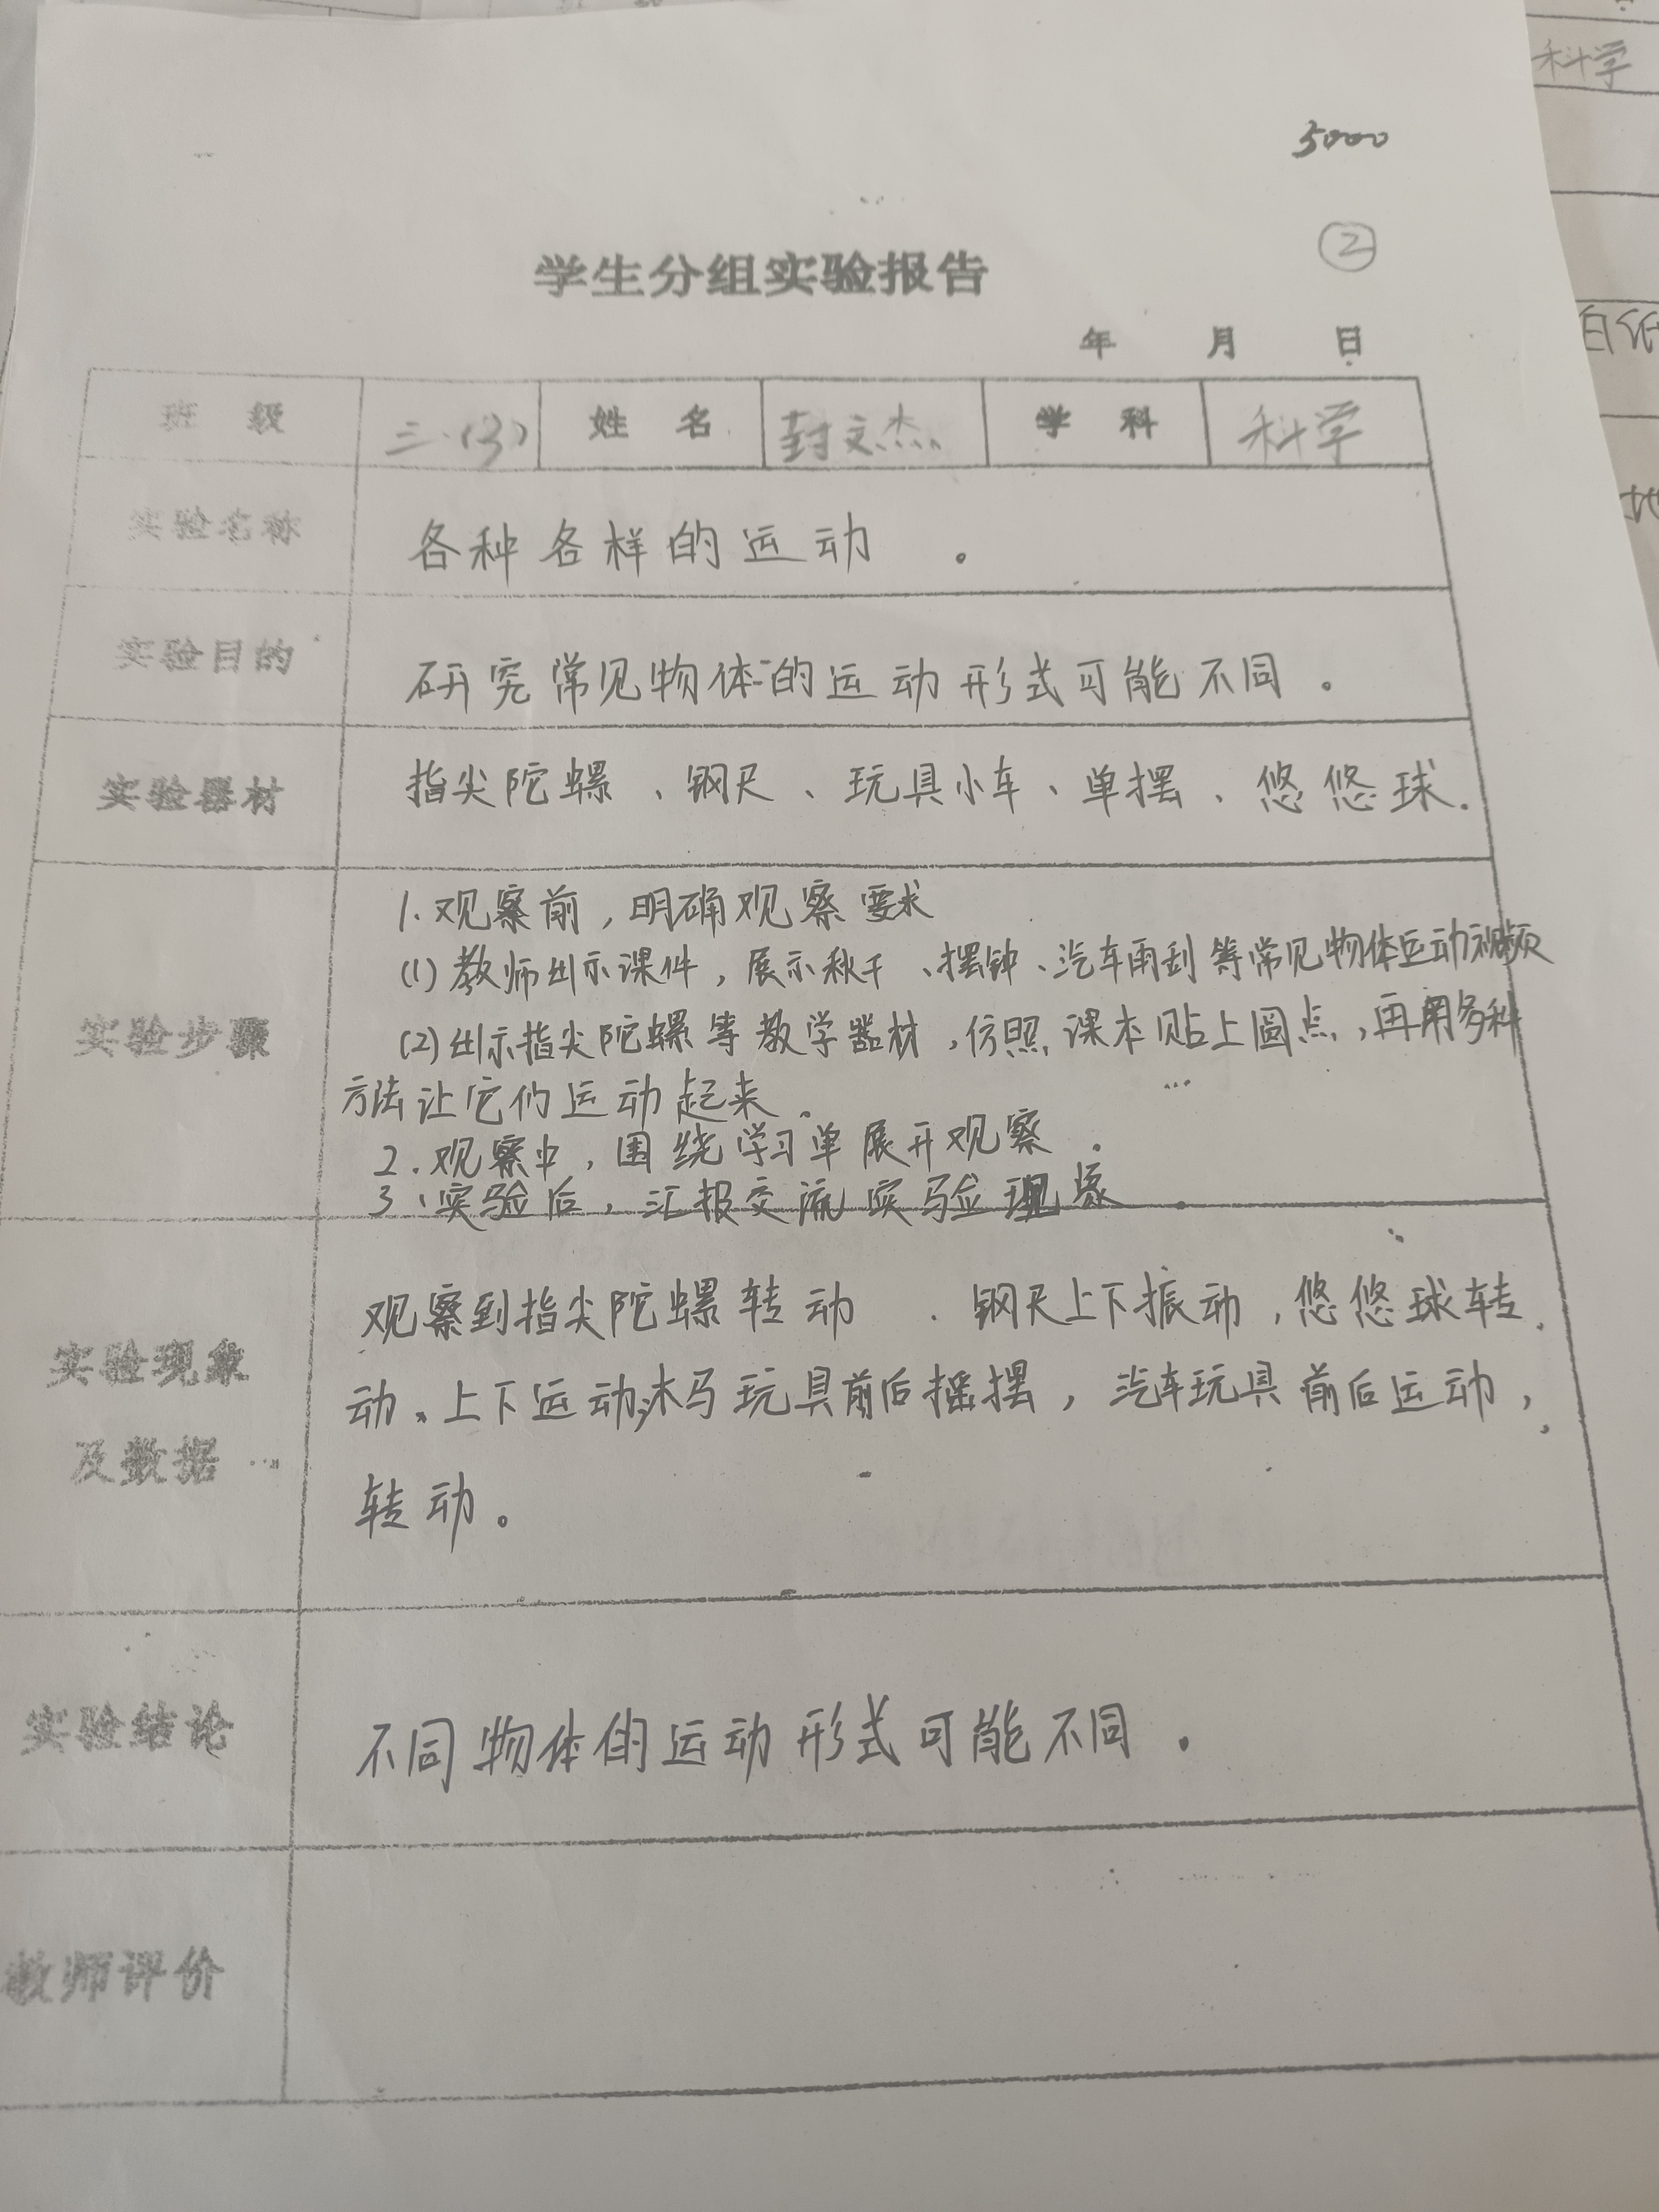 科学
5000
②
学生分组实验报告
年 月 日
班 级 三(3) 姓 名 封文杰 学 科 科学
实验名称 各种各样的运动 。
实验目的 研究常见物体的运动形式可能不同 。
实验器材 指尖陀螺 、钢尺 、玩具小车、单摆 、悠悠球.
实验步骤
1.观察前,明确观察要求
(1)教师出示课件,展示秋千、摆钟、汽车雨刮等常见物体运动视频
(2)出示指尖陀螺等教学器材,仿照课本贴上圆点,再用多种
方法让它们运动起来.
2.观察中,围绕学习单展开观察 .
3、实验后,汇报交流实验现象 .
实验现象
及数据
观察到指尖陀螺转动 . 钢尺上下振动,悠悠球转
动、上下运动,木马玩具前后摇摆,汽车玩具前后运动,
转动。
实验结论 不同物体的运动形式可能不同 .
教师评价
白纸